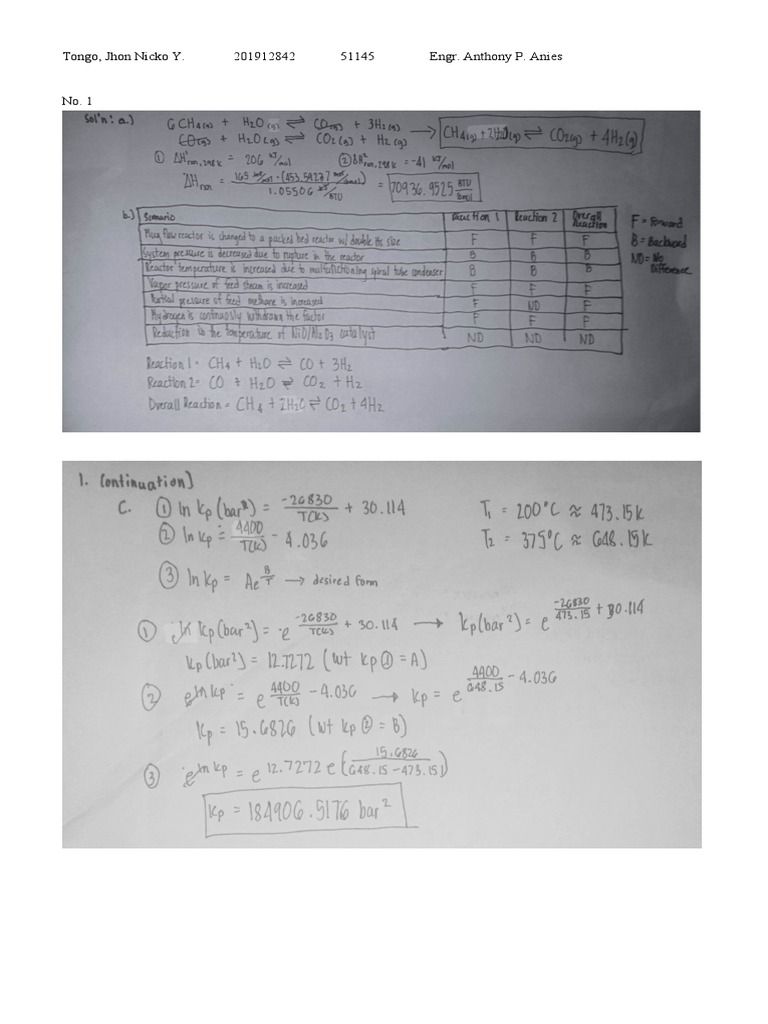 Tongo, Jhon Nicko Y. 201912842 51145 Engr. Anthony P. Anies
No. 1
Sol'n: a.) CH4(g) + H2O(g) ⇌ CO(g) + 3H2(g)
CO(g) + H2O(g) ⇌ CO2(g) + H2(g) → CH4(g) + 2H2O(g) ⇌ CO2(g) + 4H2(g)
① ΔH°rxn,298K = 206 kJ/mol ② ΔH°rxn,298K = -41 kJ/mol
ΔHrxn = 165 kJ/mol · (453.59237 mol/lbmol) / 1.05506 kJ/BTU = 70936.9525 BTU/lbmol
b.) Scenario Reaction 1 Reaction 2 Overall Reaction
Plug flow reactor is changed to a packed bed reactor w/ double its size F F F
System pressure is decreased due to rupture in the reactor B B B
Reactor temperature is increased due to malfunctioning spiral tube condenser B B B
Vapor pressure of feed steam is increased F F F
Partial pressure of feed methane is increased F ND F
Hydrogen is continuosly withdrawn the factor F F F
Reduction in the temperature of NiO/Al2O3 catalyst ND ND ND
F = Forward
B = Backward
ND = No Difference
Reaction 1 = CH4 + H2O ⇌ CO + 3H2
Reaction 2 = CO + H2O ⇌ CO2 + H2
Overall Reaction = CH4 + 2H2O ⇌ CO2 + 4H2
1. Continuation]
C. ① ln kp (bar²) = -26830/T(K) + 30.114 T1 = 200°C ≈ 473.15K
② ln kp = 4400/T(K) - 4.036 T2 = 375°C ≈ 648.15K
③ ln kp = Ae^(B/T) → desired form
① kp(bar²) = e^(-26830/T(K) + 30.114) → kp(bar²) = e^(-26830/473.15 + 30.114)
kp(bar²) = 12.7272 (wt kp ① = A)
② e^ln kp = e^(4400/T(K) - 4.036) → kp = e^(4400/648.15 - 4.036)
kp = 15.6826 (wt kp ② = B)
③ e^ln kp = e^12.7272 e (15.6826/(648.15 - 473.15))
kp = 184906.5176 bar²